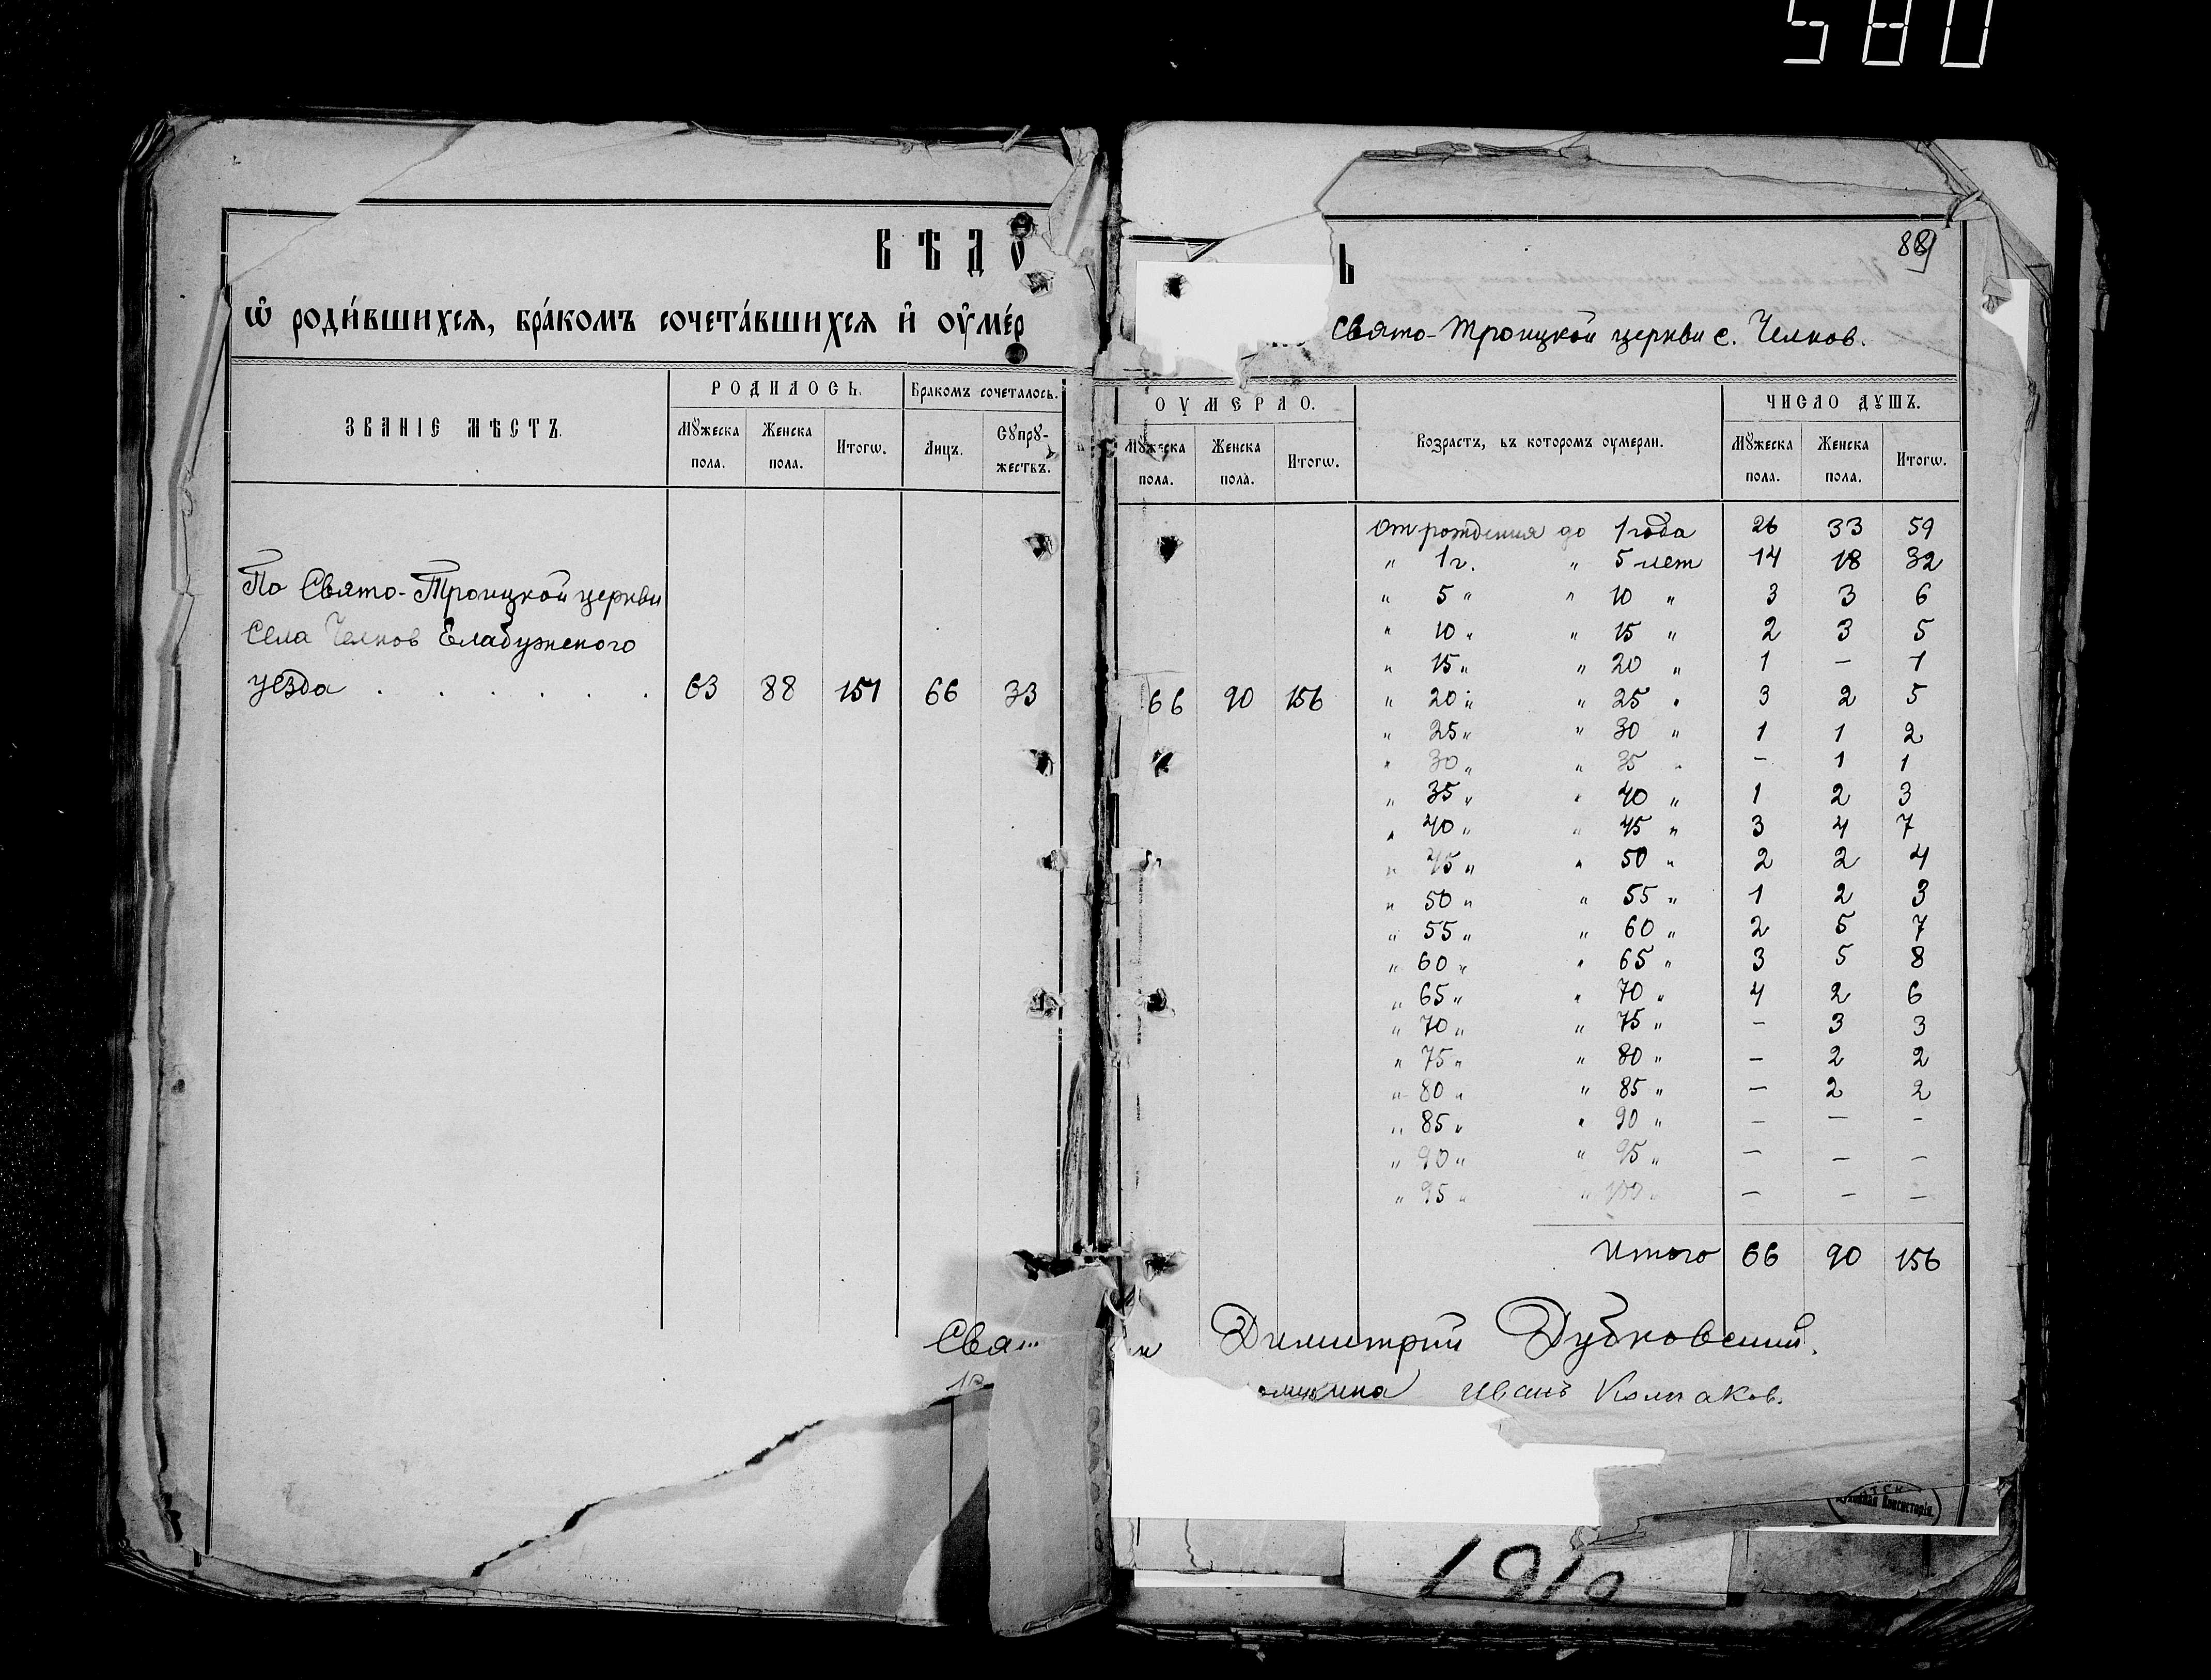 580
ВѢДО
ѿ роди́вшихсѧ, бра́комъ сочета́вшихсѧ и҆ оу҆ме́р
ЗВАНІЕ МѢСТЪ.
РОДИЛОСЬ.
Бракомъ сочеталось.
Мꙋжеска пола.
Женска пола.
Итогѡ.
Лицъ.
Сꙋпрꙋ-жествъ.
По Свято-Троицкой церкви
Села Челнов Елабужского
уезда . . . . . . 63 88 151 66 33
Сва
Ь
88
Свято-Троицкой церкви с. Челнов.
ОУМЕРЛО.
Мꙋжеска пола.
Женска пола.
Итогѡ.
Возрастъ, въ которомъ оумерли.
ЧИСЛО ДꙋШЪ.
Мꙋжеска пола.
Женска пола.
Итогѡ.
От рождения до 1 года 26 33 59
„ 1 г. „ 5 лет 14 18 32
„ 5 „ „ 10 „ 3 3 6
„ 10 „ „ 15 „ 2 3 5
„ 15 „ „ 20 „ 1 — 1
66 90 156 „ 20 „ „ 25 „ 3 2 5
„ 25 „ „ 30 „ 1 1 2
„ 30 „ „ 35 „ — 1 1
„ 35 „ „ 40 „ 1 2 3
„ 40 „ „ 45 „ 3 4 7
„ 45 „ „ 50 „ 2 2 4
„ 50 „ „ 55 „ 1 2 3
„ 55 „ „ 60 „ 2 5 7
„ 60 „ „ 65 „ 3 5 8
„ 65 „ „ 70 „ 4 2 6
„ 70 „ „ 75 „ — 3 3
„ 75 „ „ 80 „ — 2 2
„ 80 „ „ 85 „ — 2 2
„ 85 „ „ 90 „ — — —
„ 90 „ „ 95 „ — — —
„ 95 „ „ 100 „ — — —
Итого 66 90 156
Димитрий Дубковский.
Иванъ Колпаков.
ТСК
Духовная Консисторія.